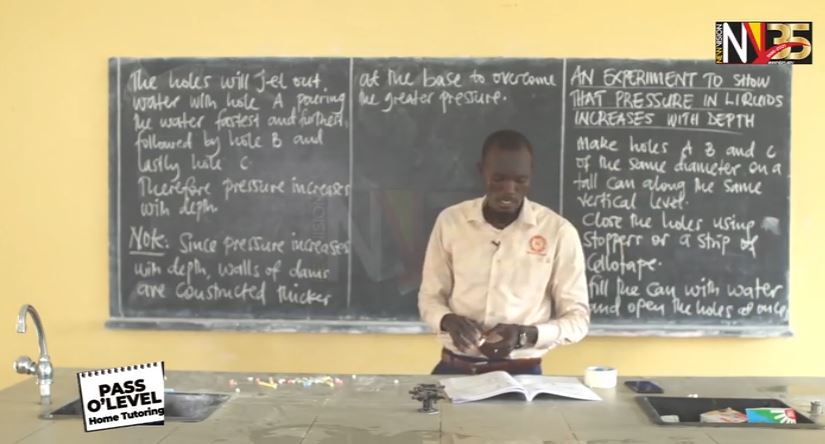 The holes will jet out
water with hole A pouring
the water fastest and furthest,
followed by hole B and
lastly hole C.
Therefore pressure increases
with depth.
Note: Since pressure increases
with depth, walls of dams
are constructed thicker
at the base to overcome
the greater pressure.
AN EXPERIMENT TO SHOW
THAT PRESSURE IN LIQUIDS
INCREASES WITH DEPTH
Make holes A B and C
of the same diameter on a
tall can along the same
vertical level.
Close the holes using
stoppers or a strip of
Cellotape.
Fill the can with water
and open the holes at once
NEW VISION
NV 35
PASS
O'LEVEL
Home Tutoring